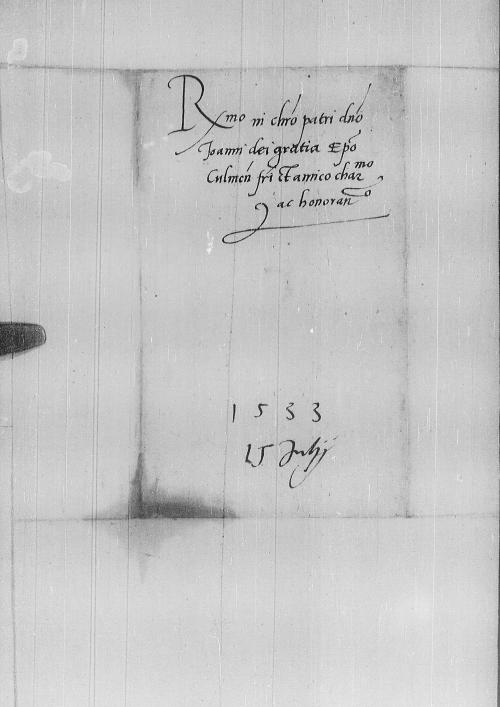 Rxmo in chro patri dno
Joanni dei gratia Epo
Culmen fri et amico charmo
ac honorano
1533
15 Julij